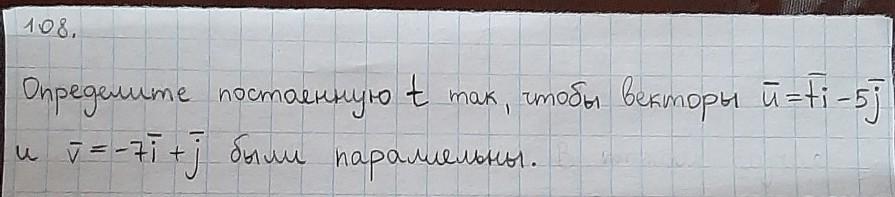 108.
Определите постоенную t так, чтобы векторы ū = t̄i - 5j̄
и v̄ = -7ī + j̄ были параллельны.